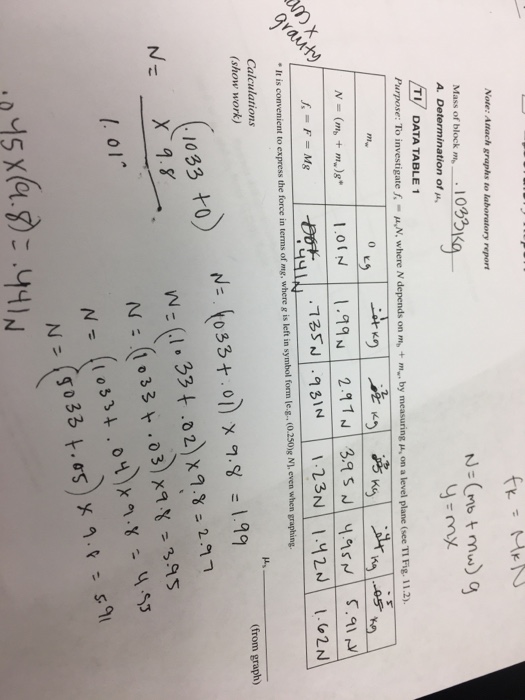 fk = MkN
N = (mb + mw) g
y = mx
Note: Attach graphs to laboratory report
Mass of block m_b .1033 kg
A. Determination of μ_s
TI DATA TABLE 1
Purpose: To investigate f_s = μ_sN, where N depends on m_b + m_w, by measuring μ_s on a level plane (see TI Fig. 11.2).
m_w 0 kg .1 kg .2 kg .3 kg .4 kg .5 kg
N = (m_b + m_w)g* 1.01N 1.99N 2.97N 3.95N 4.95N 5.91N
f_s = F = Mg .441N .735N .931N 1.23N 1.42N 1.62N
mass x
gravity
* It is convenient to express the force in terms of mg, where g is left in symbol form [e.g., (0.250)g N], even when graphing.
Calculations
(show work)
μ_s
(from graph)
N = (.1033 + 0)
x 9.8
1.01
N = (1033 + .01) x 9.8 = 1.99
N = (1033 + .02) x 9.8 = 2.97
N = (1033 + .03) x 9.8 = 3.95
N = (1033 + .04) x 9.8 = 4.95
N = (5033 + .05) x 9.8 = 5.91
.045 x (9.8) = .441N